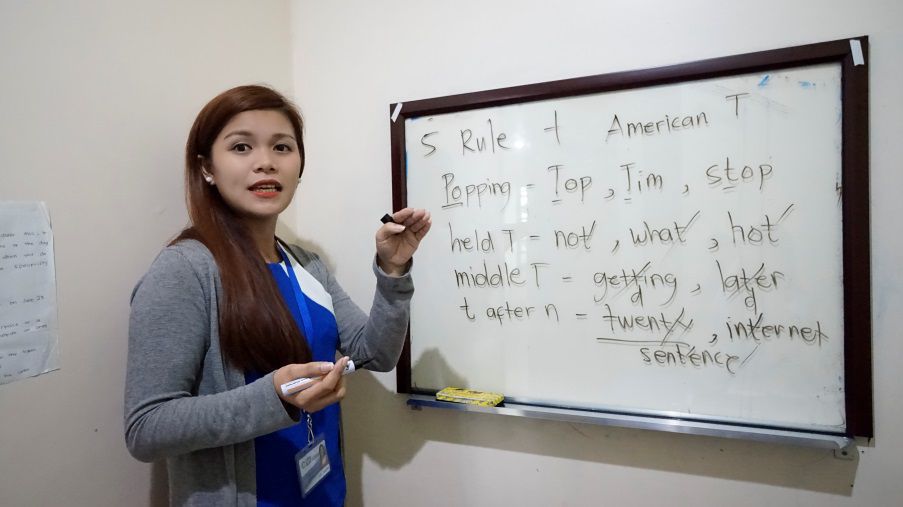 5 Rule t American T
Popping = Top, Tim, stop
held T = not, what, hot
middle T = getting, later
d d
t after n = twenty, internet
sentence